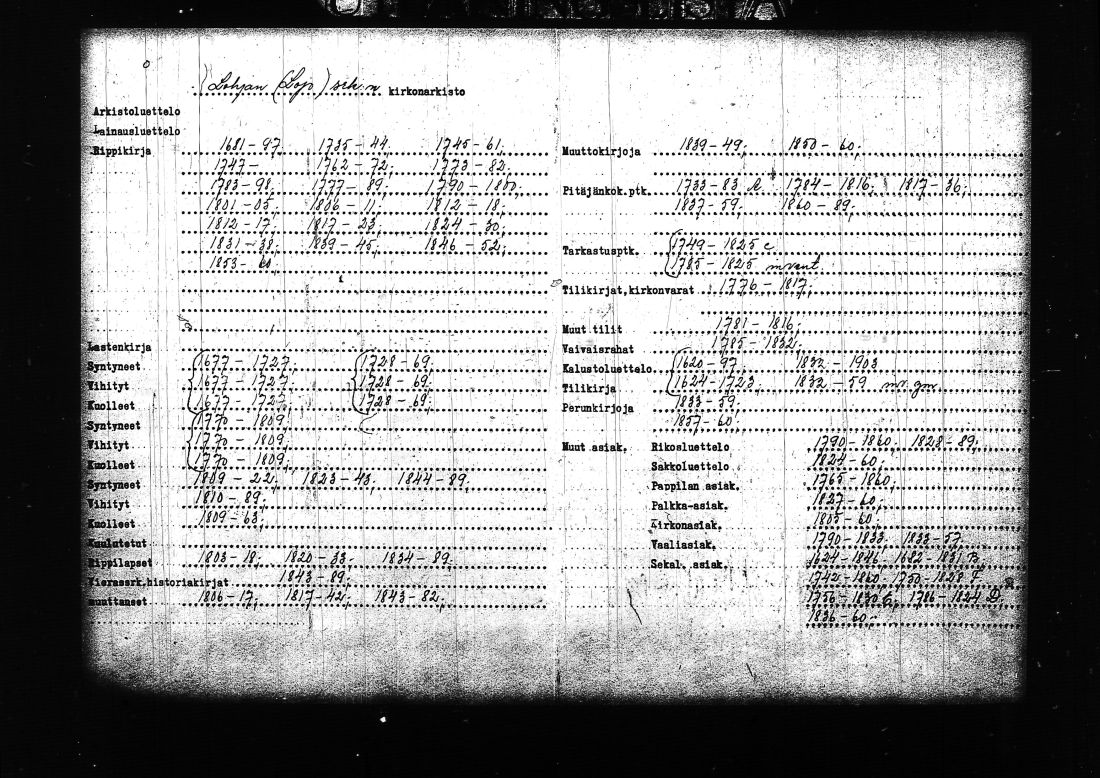 Lohjan (Lojo) srk:n kirkonarkisto
Arkistoluettelo
Lainausluettelo
Rippikirja 1681-97; 1735-44; 1745-61;
1747- 1762-72; 1773-82;
1783-98; 1777-89; 1790-1800;
1801-05; 1806-11; 1812-18;
1812-17; 1817-23; 1824-30;
1831-38; 1839-45; 1846-52;
1853-60;
Lastenkirja
Syntyneet 1677-1727; 1728-69;
Vihityt 1677-1727; 1728-69;
Kuolleet 1677-1727; 1728-69;
Syntyneet 1770-1809;
Vihityt 1770-1809;
Kuolleet 1770-1809;
Syntyneet 1809-22; 1823-43; 1844-89;
Vihityt 1810-89;
Kuolleet 1809-63;
Kuulutetut
Rippilapset 1803-18; 1820-33; 1834-89;
Vierassrk.historiakirjat 1843-89;
muuttaneet 1806-17; 1817-42; 1843-82;
Muuttokirjoja 1839-49; 1850-60;
Pitäjänkok.ptk. 1733-83 1784-1816; 1817-36;
1837-59; 1860-89;
Tarkastusptk. 1749-1825 c
1785-1825
Tilikirjat,kirkonvarat 1776-1817;
Muut tilit 1781-1816;
Vaivaisrahat 1785-1832;
Kalustoluettelo. 1620-97; 1832-1903
Tilikirja 1624-1723; 1832-59
Perunkirjoja 1833-59;
1857-60;
Muut asiak. Rikosluettelo 1790-1860; 1828-89;
Sakkoluettelo 1824-60;
Pappilan asiak. 1765-1860;
Palkka-asiak. 1827-60;
Kirkonasiak. 1805-60;
Vaaliasiak. 1790-1833; 1833-57;
Sekal. asiak. 1624-1846; 1682-1831 B;
1742-1860; 1750-1828 F
1756-1830 1786-1824 D;
1836-60;